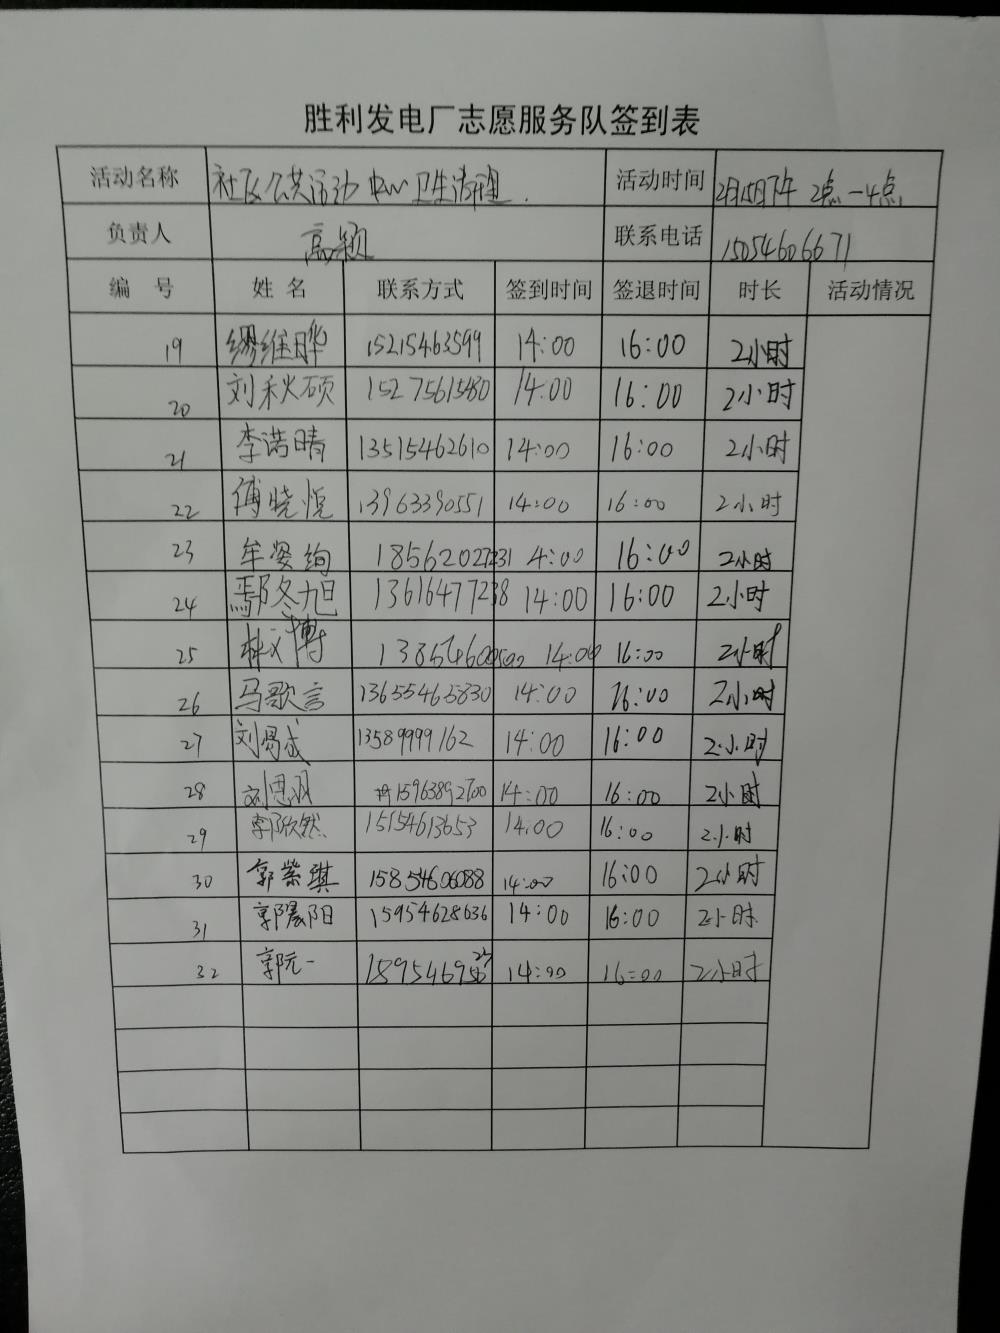 胜利发电厂志愿服务队签到表
活动名称 社区公共活动中心卫生清理. 活动时间 2月15日下午 2点-4点
负责人 高颖 联系电话 15054606671
编 号 姓 名 联系方式 签到时间 签退时间 时长 活动情况
19 缪维晔 15215463599 14:00 16:00 2小时
20 刘秋硕 15275615480 14:00 16:00 2小时
21 李诺晴 13515462610 14:00 16:00 2小时
22 傅晓悦 13963390551 14:00 16:00 2小时
23 牟姿绚 18562027231 4:00 16:00 2小时
24 鄢冬旭 13616477238 14:00 16:00 2小时
25 林汉博 14:00 16:00 2小时
26 马歌言 13655465830 14:00 16:00 2小时
27 13589999162 14:00 16:00 2小时
28 刘思羽 15963892700 14:00 16:00 2小时
29 郭欣然 15154613653 14:00 16:00 2小时
30 郭紫琪 15854606088 14:00 16:00 2小时
31 郭晨阳 15954628636 14:00 16:00 2小时
32 郭沅一 14:00 16:00 2小时